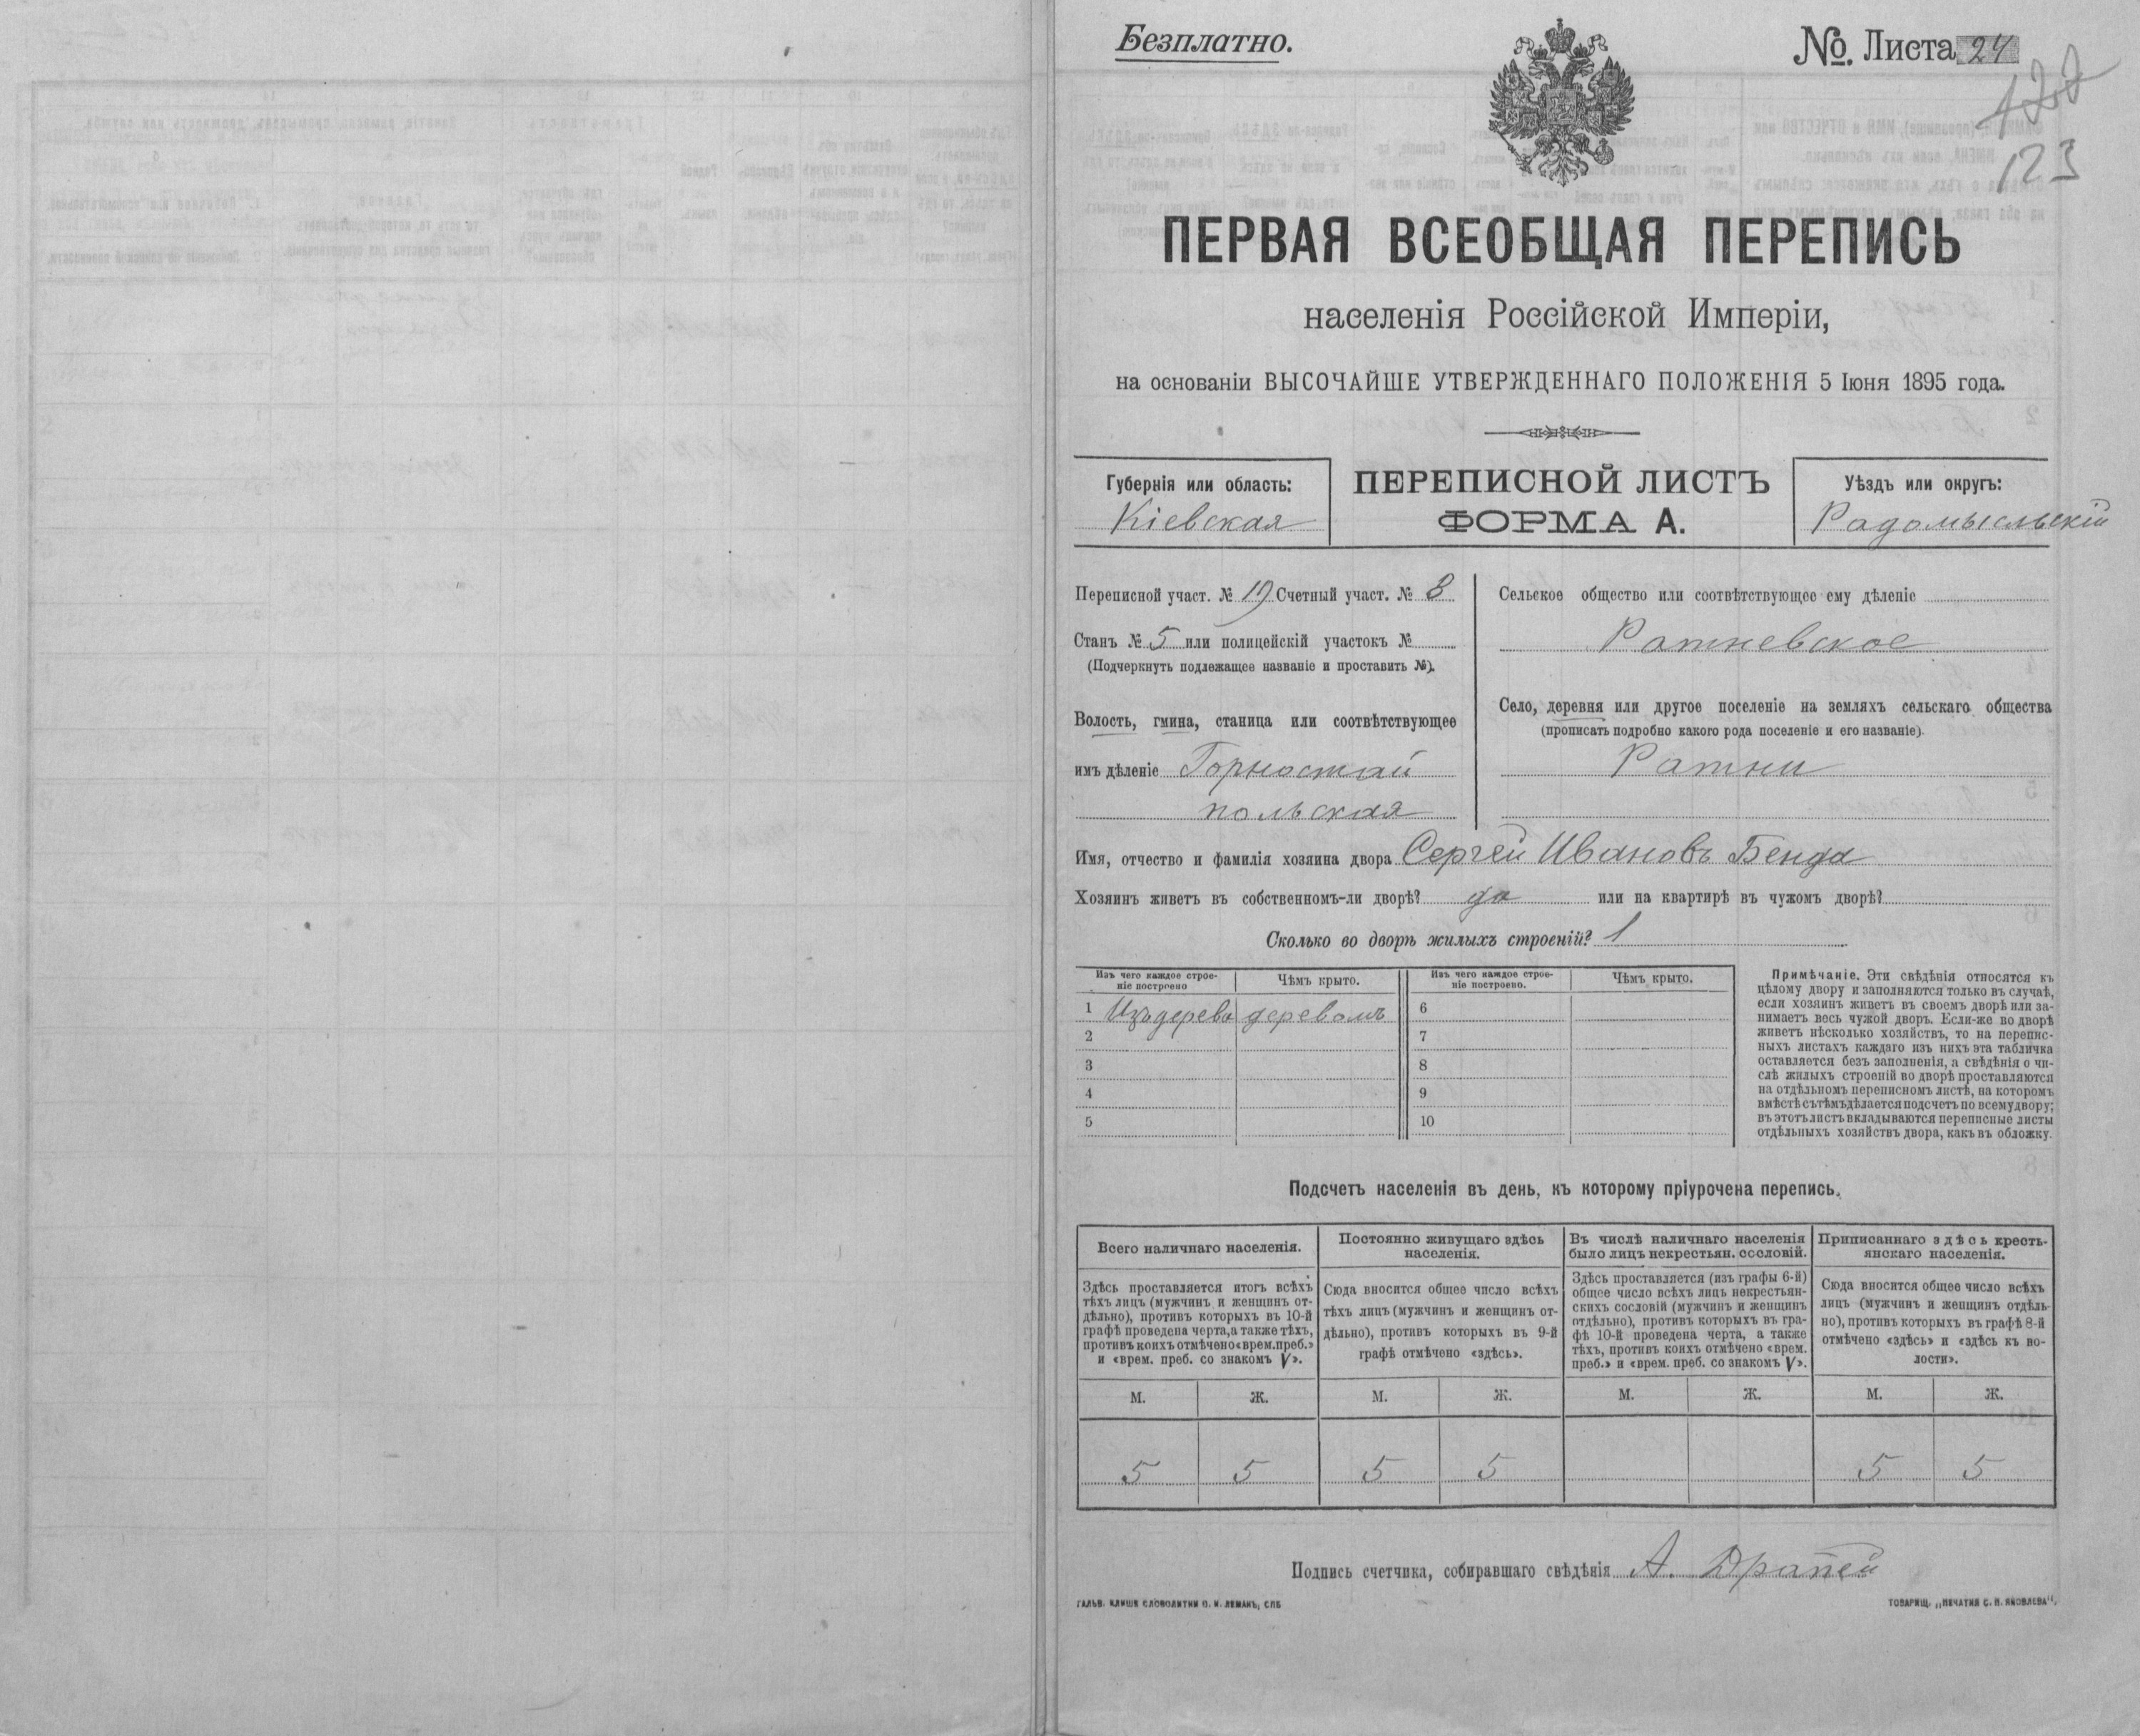 Безплатно.
№. Листа 24
122
123
ПЕРВАЯ ВСЕОБЩАЯ ПЕРЕПИСЬ
населенія Россійской Имперіи,
на основаніи ВЫСОЧАЙШЕ УТВЕРЖДЕННАГО ПОЛОЖЕНІЯ 5 Іюня 1895 года.
Губернія или область:
Кіевская
ПЕРЕПИСНОЙ ЛИСТЪ
ФОРМА А.
Уѣздъ или округъ:
Радомысльскій
Переписной участ. № 19 Счетный участ. № 8
Станъ № 5 или полицейскій участокъ №
(Подчеркнуть подлежащее названіе и проставить №).
Волость, гмина, станица или соотвѣтствующее
имъ дѣленіе Горностай
польская
Сельское общество или соотвѣтствующее ему дѣленіе
Ратневское
Село, деревня или другое поселеніе на земляхъ сельскаго общества
(прописать подробно какого рода поселеніе и его названіе).
Ратни
Имя, отчество и фамилія хозяина двора Сергѣй Ивановъ Бенда
Хозяинъ живетъ въ собственномъ-ли дворѣ? да или на квартирѣ въ чужомъ дворѣ?
Сколько во дворѣ жилыхъ строеній? 1
Изъ чего каждое строе-
ніе построено
Чѣмъ крыто.
Изъ чего каждое строе-
ніе построено.
Чѣмъ крыто.
1 Изъ дерева деревомъ 6
2 7
3 8
4 9
5 10
Примѣчаніе. Эти свѣдѣнія относятся къ
цѣлому двору и заполняются только въ случаѣ,
если хозяинъ живетъ въ своемъ дворѣ или за-
нимаетъ весь чужой дворъ. Если-же во дворѣ
живетъ нѣсколько хозяйствъ, то на перепис-
ныхъ листахъ каждаго изъ нихъ эта табличка
оставляется безъ заполненія, а свѣдѣнія о чи-
слѣ жилыхъ строеній во дворѣ проставляются
на отдѣльномъ переписномъ листѣ, на которомъ
вмѣстѣ съ тѣмъ дѣлается подсчетъ по всему двору;
въ этотъ листъ вкладываются переписные листы
отдѣльныхъ хозяйствъ двора, какъ въ обложку.
Подсчетъ населенія въ день, къ которому пріурочена перепись.
Всего наличнаго населенія.
Здѣсь проставляется итогъ всѣхъ
тѣхъ лицъ (мужчинъ и женщинъ от-
дѣльно), противъ которыхъ въ 10-й
графѣ проведена черта, а также тѣхъ,
противъ коихъ отмѣчено «врем. преб.»
и «врем. преб. со знакомъ V».
Постоянно живущаго здѣсь
населенія.
Сюда вносится общее число всѣхъ
тѣхъ лицъ (мужчинъ и женщинъ от-
дѣльно), противъ которыхъ въ 9-й
графѣ отмѣчено «здѣсь».
Въ числѣ наличнаго населенія
было лицъ некрестьян. сословій.
Здѣсь проставляется (изъ графы 6-й)
общее число всѣхъ лицъ некрестьян-
скихъ сословій (мужчинъ и женщинъ
отдѣльно), противъ которыхъ въ гра-
фѣ 10-й проведена черта, а также
тѣхъ, противъ коихъ отмѣчено «врем.
преб.» и «врем. преб. со знакомъ V».
Приписаннаго здѣсь кресть-
янскаго населенія.
Сюда вносится общее число всѣхъ
лицъ (мужчинъ и женщинъ отдѣль-
но), противъ которыхъ въ графѣ 8-й
отмѣчено «здѣсь» и «здѣсь къ во-
лости».
М. Ж. М. Ж. М. Ж. М. Ж.
5 5 5 5 5 5
Подпись счетчика, собиравшаго свѣдѣнія А. Драпей
ГАЛЬВ. КЛИШЕ СЛОВОЛИТНИ О. И. ЛЕМАНЪ, СПБ
ТОВАРИЩ. „ПЕЧАТНЯ С. П. ЯКОВЛЕВА“.